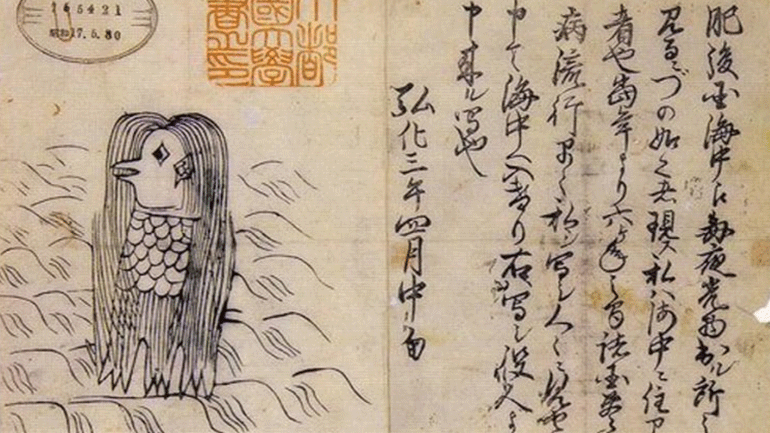 165421
昭和17.5.30
國大學
肥後国海中え毎夜光物出ル所之
見るニづの如く者現ス私ハ海中ニ住ア
者也当年より六ヶ年之間諸国豊
病流行早々私ヲ写シ人々ニ見せ
申て海中へ入けり右写シ役人よ
申来ル写也
弘化三年四月中旬